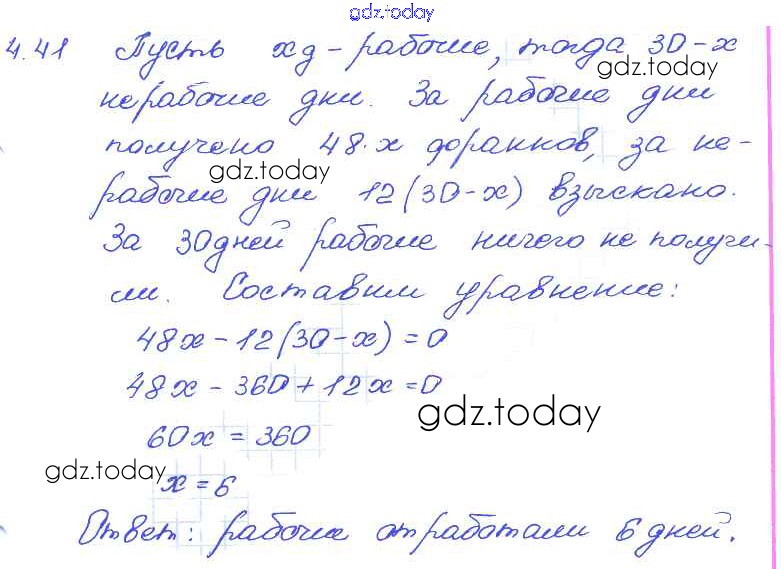 gdz.today
4.41 Пусть х д - рабочие, тогда 30-х
gdz.today
нерабочие дни. За рабочие дни
получено 48·х форанков, за не-
gdz.today
рабочие дни 12(30-х) взыскано.
За 30 дней рабочие ничего не получи-
ли. Составим уравнение:
48х-12(30-х)=0
48х-360+12х=0
gdz.today
60х=360
gdz.today
х=6
Ответ: рабочие отработали 6 дней.